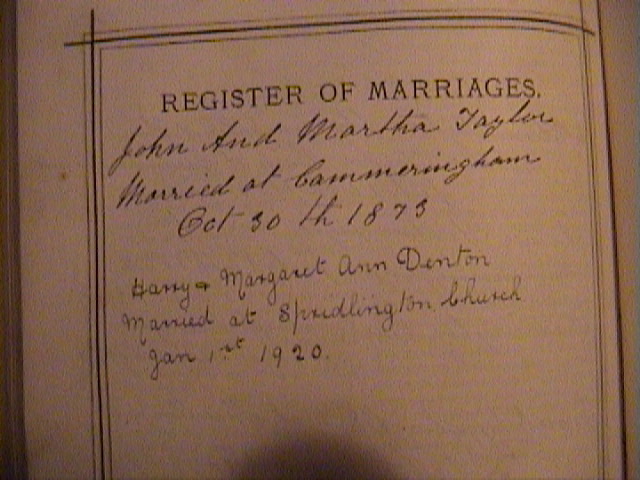 REGISTER OF MARRIAGES.
John And Martha Taylor
Married at Cammeringham
Oct 30 th 1873
Harry & Margaret Ann Denton
Married at Spridlington Church
Jan 1st 1920.